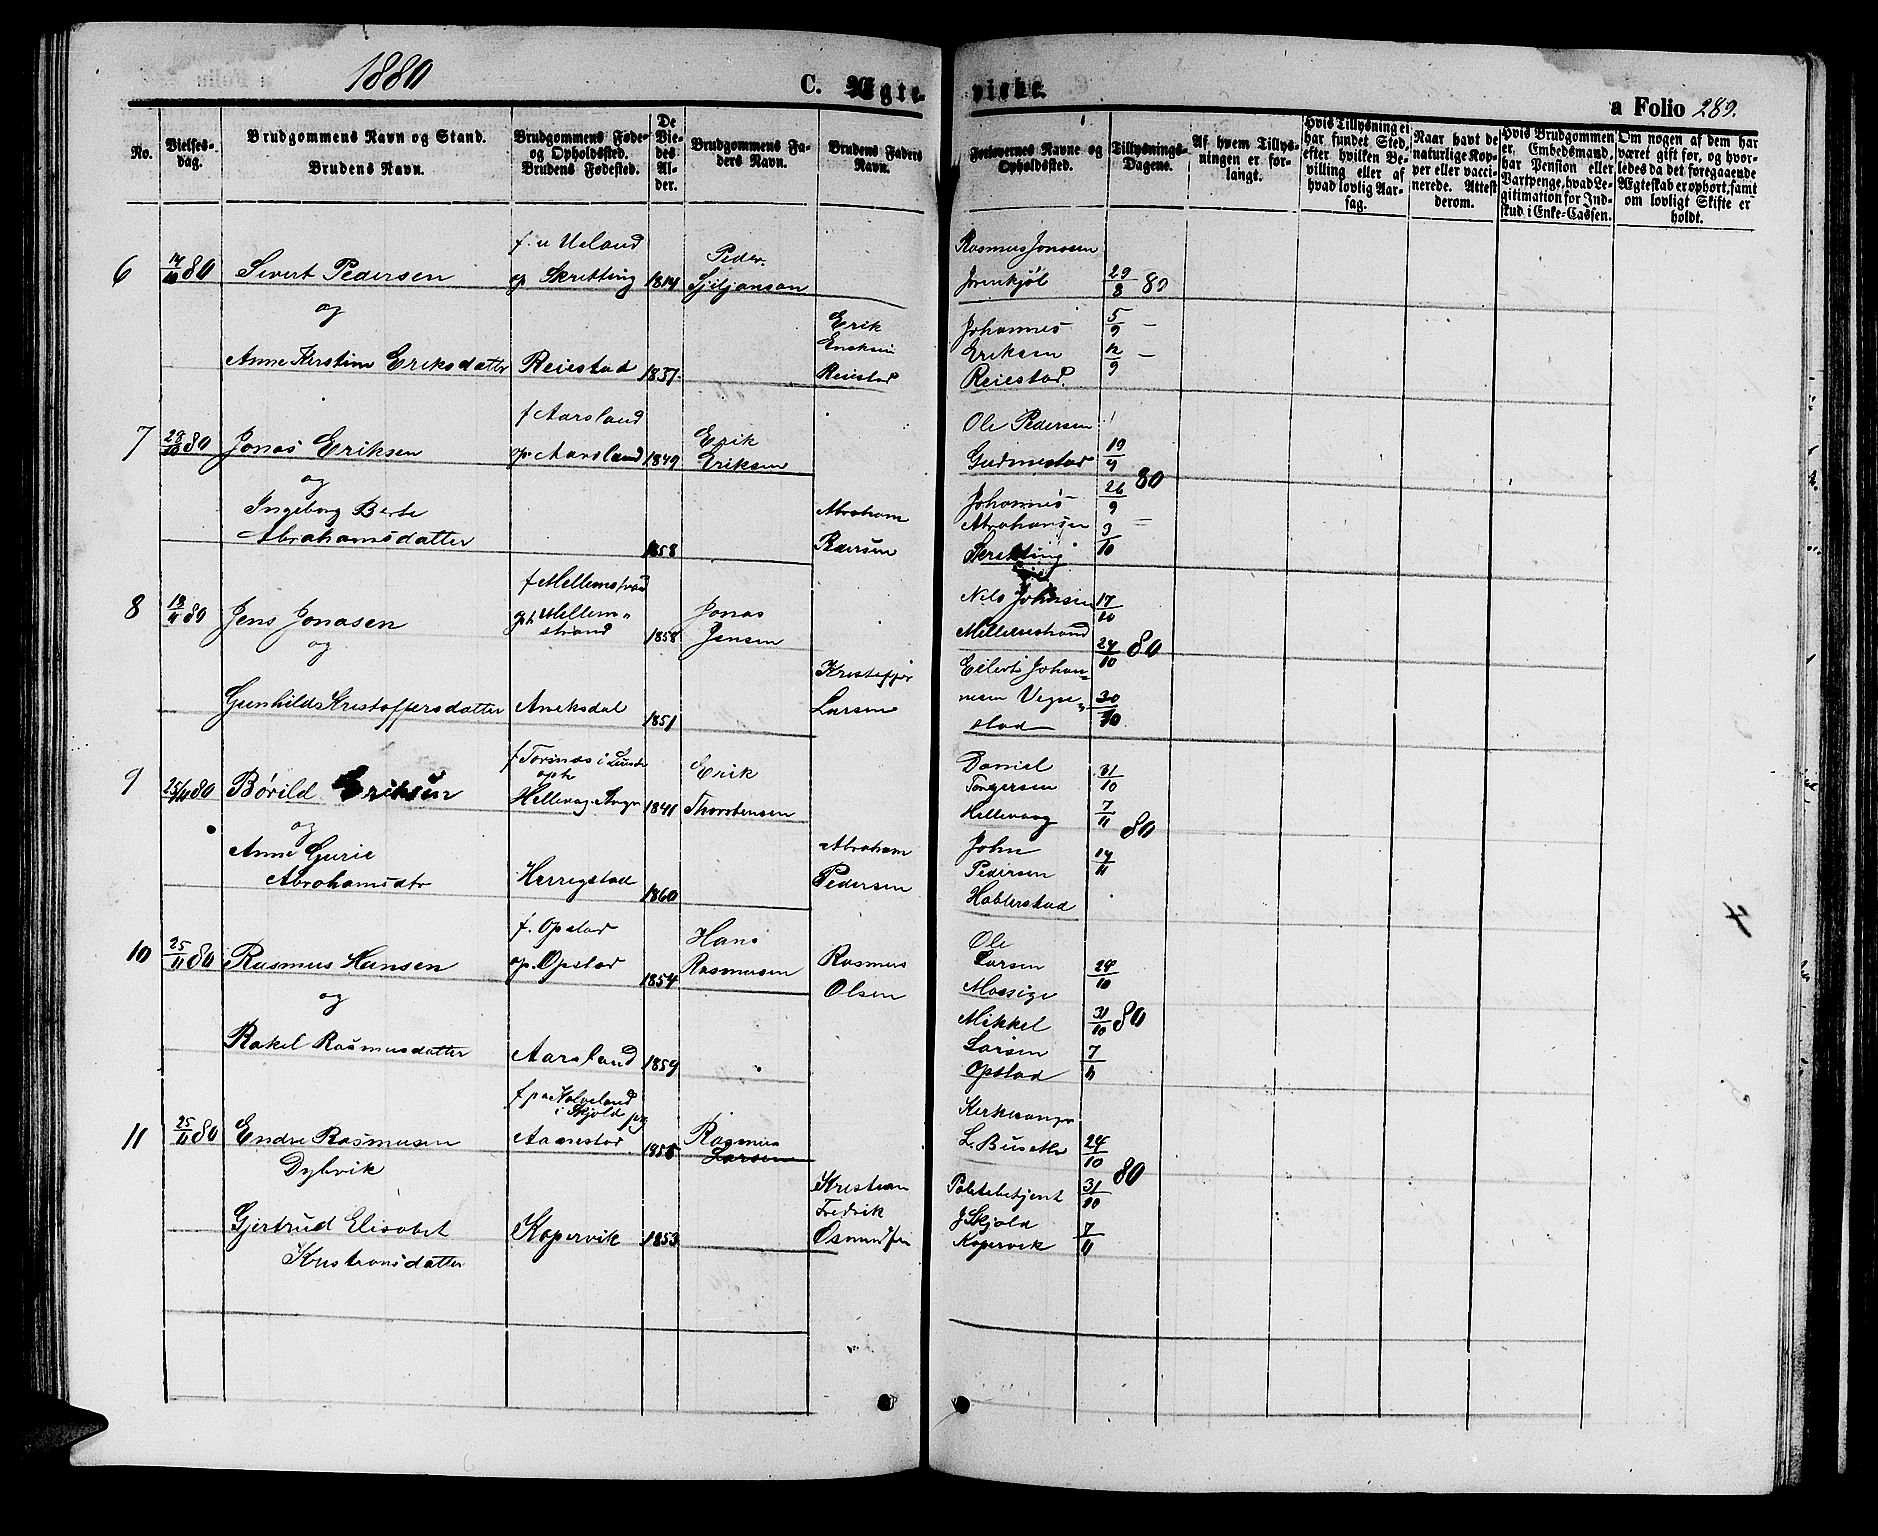 1880
C. Ægte-
viede.
a Folio 289.
No.
Vielses-
dag.
Brudgommens Navn og Stand.
Brudens Navn.
Brudgommens Føde-
og Opholdsted.
Brudens Fødested.
De
Vie-
des
Al-
der.
Brudgommens Fa-
ders Navn.
Brudens Faders
Navn.
Forlovernes Navne og
Opholdsted.
Tillysnings-
Dagene.
Af hvem Tillys-
ningen er for-
langt.
Hvis Tillysning ei
har fundet Sted,
efter hvilken Be-
villing eller af
hvad lovlig Aar-
sag.
Naar havt de
naturlige Kop-
per eller vacci-
nerede. Attest
derom.
Hvis Brudgommen
er Embedsmand,
har Pension eller
Vartpenge, hvad Le-
gitimation for Ind-
skud i Enke-Cassen.
Om nogen af dem har
været gift før, og hvor-
ledes da det foregaaende
Ægteskab er ophørt, samt
om lovligt Skifte er
holdt.
6
14/10 80
Sivert Pedersen
og
Anne Kerstine Eriksdatter
f. Ueland
op Skretting
Reiestad
1814
1837
Peder
Erik
Reiestad
Rasmus Jonasen
Johannes
Eriksen
Reiestad
29/8 80
5/9 –
12/9 –
7
28/10 80
Jonas Eriksen
og
Ingeborg Berte
Abrahamsdatter
f Aarsland
op Aarsland
1849
1858
Erik
Eriksen
Abraham
Pedersen
Ole Pedersen
Gudmestad
Johannes
Abrahamsen
Skretting
19/9
80
26/9
3/10
8
18/11 80
Jens Jonasen
og
Gunhild Kristoffersdatter
f Mellemstrand
op Mellem-
strand
Aneksdal
1858
1851
Jonas
Jensen
Kristoffer
Larsen
Nils Johnsen
Mellemstrand
Eilert Johan-
nesen Vigre-
stad
17/10
24/10 80
30/10
9
25/11 80
Børild Eriksen
og
Anne Gurie
Abrahamsdtr
f Torsnes i Lunde
oph
Hellevag
Herrigstad
1841
1860
Erik
Thorstensen
Abraham
Pedersen
Daniel
Torgersen
Hellevaag
John
Pedersen
Hobberstad
31/10
7/11
80
14/11
10
25/11 80
Rasmus Hansen
og
Rakel Rasmusdatter
f. Opstad
op. Opstad
Aarsland
1854
1859
Hans
Rasmusen
Rasmus
Olsen
Ole
Larsen
Mossige
Mikkel
Larsen
Opstad
24/10
31/10 80
7/11
11
25/11 80
Endre Rasmusen
Dybvik
Gjertrud Elisabet
Kristiansdatter
f paa Kolveland
i Skjold pgj
Aanestad
Kopervik
1855
1853
Rasmus
Larsen
Kristian
Fredrik
Osmundsen
Kirkesanger
L. Buseth
Politibetjent
J Skjold
Kopervik
24/10
80
31/10
7/11